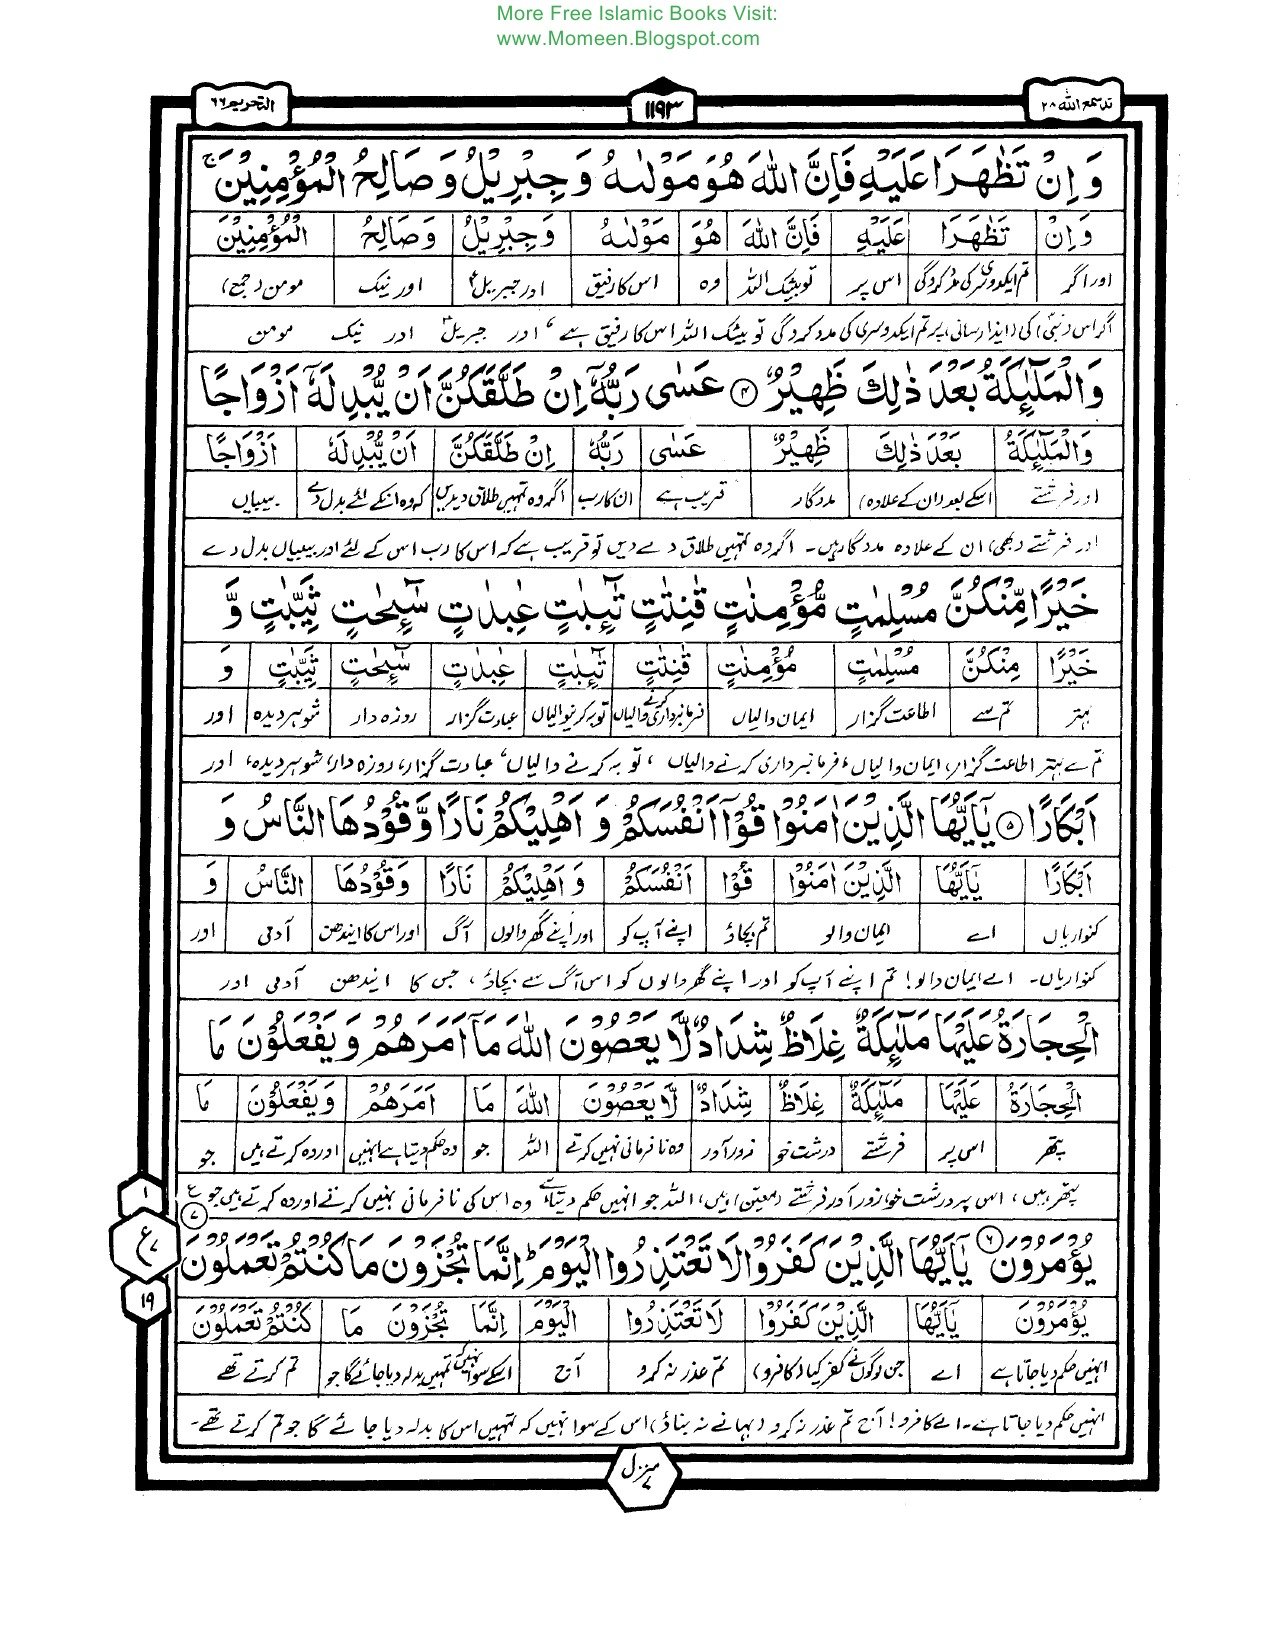 More Free Islamic Books Visit:
www.Momeen.Blogspot.com
قدسمع الله ٢٨
١١٩٣
التحریم ٦٦
وَ اِنْ تَظٰهَرَا عَلَیْهِ فَاِنَّ اللّٰهَ هُوَ مَوْلٰىهُ وَ جِبْرِیْلُ وَ صَالِحُ الْمُؤْمِنِیْنَ ۚ
وَ اِنْ تَظٰهَرَا عَلَیْهِ فَاِنَّ اللّٰهَ هُوَ مَوْلٰىهُ وَ جِبْرِیْلُ وَ صَالِحُ الْمُؤْمِنِیْنَ
اور اگر تم ایکدوسری کی مدد کروگی اس پر تو بیشک اللہ وہ اس کا رفیق اور جبریلؑ اور نیک مومن (جمع)
اگر اس (نبیؐ) کی (ایذا رسانی) پر تم ایکدوسری کی مدد کروگی تو بیشک اللہ اس کا رفیق ہے، اور جبریلؑ اور نیک مومن
وَالْمَلٰٓئِكَةُ بَعْدَ ذٰلِكَ ظَهِیْرٌ ﴿۴﴾ عَسٰى رَبُّهٗۤ اِنْ طَلَّقَكُنَّ اَنْ یُّبْدِلَهٗۤ اَزْوَاجًا
وَالْمَلٰٓئِكَةُ بَعْدَ ذٰلِكَ ظَهِیْرٌ عَسٰى رَبُّهٗۤ اِنْ طَلَّقَكُنَّ اَنْ یُّبْدِلَهٗۤ اَزْوَاجًا
اور فرشتے اسکے بعد (ان کے علاوہ) مددگار قریب ہے ان کا رب اگر وہ تمہیں طلاق دیدیں کہ وہ انکے لئے بدل دے بیبیاں
اور فرشتے (بھی) ان کے علاوہ مددگار ہیں۔ اگر وہ تمہیں طلاق دے دیں تو قریب ہے کہ اس کا رب اس کے لئے اور بیبیاں بدل دے
خَیْرًا مِّنْكُنَّ مُسْلِمٰتٍ مُّؤْمِنٰتٍ قٰنِتٰتٍ تٰٓئِبٰتٍ عٰبِدٰتٍ سٰٓئِحٰتٍ ثَیِّبٰتٍ وَّ
خَیْرًا مِّنْكُنَّ مُسْلِمٰتٍ مُّؤْمِنٰتٍ قٰنِتٰتٍ تٰٓئِبٰتٍ عٰبِدٰتٍ سٰٓئِحٰتٍ ثَیِّبٰتٍ وَ
بہتر تم سے اطاعت گزار ایمان والیاں فرمانبرداری کرنے والیاں توبہ کرنیوالیاں عبادت گزار روزہ دار شوہر دیدہ اور
تم سے بہتر اطاعت گزار، ایمان والیاں، فرمانبرداری کرنے والیاں، توبہ کرنے والیاں، عبادت گزار، روزہ دار، شوہر دیدہ، اور
اَبْكَارًا ﴿۵﴾ یٰۤاَیُّهَا الَّذِیْنَ اٰمَنُوْا قُوْۤا اَنْفُسَكُمْ وَ اَهْلِیْكُمْ نَارًا وَّ قُوْدُهَا النَّاسُ وَ
اَبْكَارًا یٰۤاَیُّهَا الَّذِیْنَ اٰمَنُوْا قُوْۤا اَنْفُسَكُمْ وَ اَهْلِیْكُمْ نَارًا وَّقُوْدُهَا النَّاسُ وَ
کنواریاں اے ایمان والو تم بچاؤ اپنے آپ کو اور اپنے گھر والوں آگ اور اس کا ایندھن آدمی اور
کنواریاں۔ اے ایمان والو! تم اپنے آپ کو اور اپنے گھر والوں کو اس آگ سے بچاؤ، جس کا ایندھن آدمی اور
الْحِجَارَةُ عَلَیْهَا مَلٰٓئِكَةٌ غِلَاظٌ شِدَادٌ لَّا یَعْصُوْنَ اللّٰهَ مَاۤ اَمَرَهُمْ وَ یَفْعَلُوْنَ مَا
الْحِجَارَةُ عَلَیْهَا مَلٰٓئِكَةٌ غِلَاظٌ شِدَادٌ لَّا یَعْصُوْنَ اللّٰهَ مَا اَمَرَهُمْ وَ یَفْعَلُوْنَ مَا
پتھر اس پر فرشتے درشت خو زور آور وہ نافرمانی نہیں کرتے اللہ جو وہ حکم دیتا ہے انہیں اور وہ کرتے ہیں جو
پتھر ہیں، اس پر درشت خو زور آور فرشتے (معین) ہیں، اللہ جو انہیں حکم دیتا ہے وہ اس کی نافرمانی نہیں کرتے اور وہ کرتے ہیں جو
یُؤْمَرُوْنَ ﴿۶﴾ یٰۤاَیُّهَا الَّذِیْنَ كَفَرُوْا لَا تَعْتَذِرُوا الْیَوْمَ ؕ اِنَّمَا تُجْزَوْنَ مَا كُنْتُمْ تَعْمَلُوْنَ ﴿۷﴾ ع
یُؤْمَرُوْنَ یٰۤاَیُّهَا الَّذِیْنَ كَفَرُوْا لَا تَعْتَذِرُوا الْیَوْمَ اِنَّمَا تُجْزَوْنَ مَا كُنْتُمْ تَعْمَلُوْنَ
انہیں حکم دیا جاتا ہے اے جن لوگوں نے کفر کیا (کافرو) تم عذر نہ کرو آج اسکے سوا نہیں تمہیں بدلہ دیا جائے گا جو تم کرتے تھے
انہیں حکم دیا جاتا ہے۔ اے کافرو! آج تم عذر نہ کرو (بہانے نہ بناؤ) اس کے سوا نہیں کہ تمہیں اس کا بدلہ دیا جائے گا جو تم کرتے تھے۔
١
ع ٧
١٩
منزل ٧